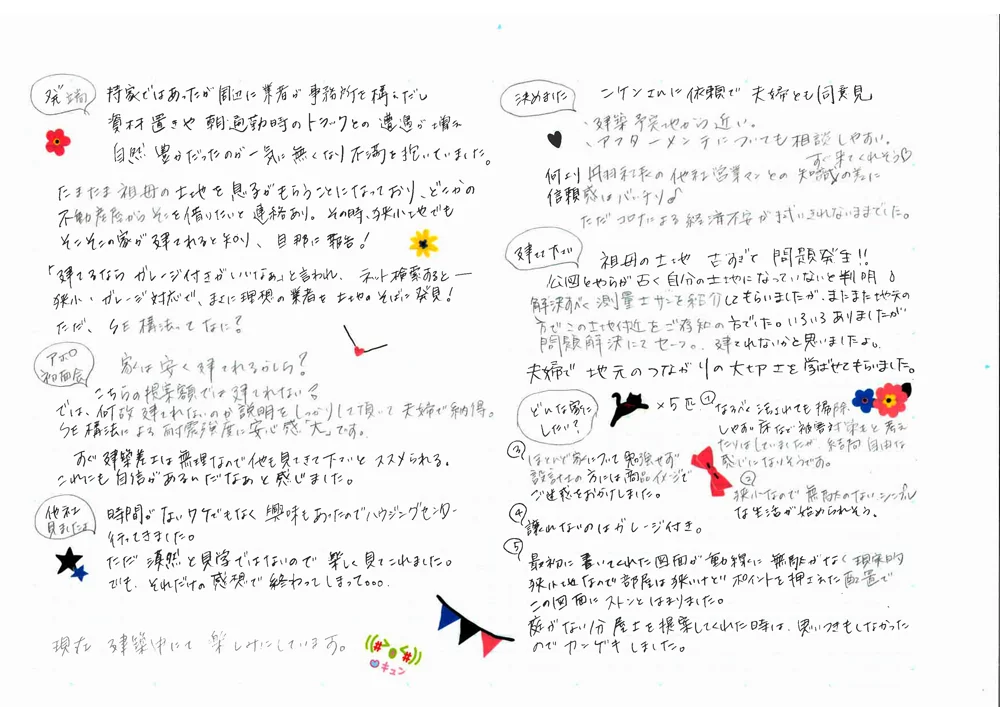 発端
持家ではあったが周辺に業者が事務所を構えだし
資材置きや朝通勤時のトラックとの遭遇が増え
自然豊かだったのが一気に無くなり不満を抱いていました。
たまたま祖母の土地を息子がもらうことになっており、どこかの
不動産屋からそこを借りたいと連絡あり。その時、狭小地でも
そこそこの家が建てれると知り、旦那に報告!
「建てるならガレージ付きがいいなぁ」と言われ、ネット検索すると―
狭小・ガレージ対応で、まさに理想の業者を土地のそばに発見!
ただ、SE構法ってなに?
アポロ
初面会
家は安く建てれるかしら?
こちらの提案額では建てれない?
では、何故建てれないのか説明をしっかりして頂いて夫婦で納得。
SE構法による耐震強度に安心感「大」です。
すぐ建築着工は無理なので他も見てきて下さいとススメられる。
これにも自信があるんだなぁと感じました。
他社
見ました
時間がないワケでもなく興味もあったのでハウジングセンター
行ってきました。
ただ漠然と見学ではないので楽しく見てこれました。
でも、それだけの感想で終わってしまって。。。
現在 建築中にて楽しみにしています。
キュン
決めました
ニケンさんに依頼で夫婦とも同意見
・建築予定地から近い。
・アフターメンテについても相談しやすい。
すぐ来てくれそう♡
何より 他社営業マンとの知識の差に
信頼感はバッチリ♪
ただコロナによる経済不安が拭いきれないままでした。
建てて下さい
祖母の土地 さすがと問題発生!!
公図とやらが古く自分の土地になっていないと判明。
解決すべく測量士サンを紹介してもらいましたが、またまた地元の
方でこの土地付近をご存知の方でした。いろいろありましたが
問題解決にてセーフ。建てれないかと思いましたよ。
夫婦で地元のつながりの大切さを学ばせてもらいました。
どんな家に
したい?
×5匹
① なるべく汚されても掃除
しやすい床など被害対策をと考え
たりはしていましたが 結局自由な
感じになりそうです。
② 狭小なので無駄のないシンプル
な生活が始められそう。
③ ほとんど家について勉強せず
設計士の方には商品イメージで
ご迷惑をおかけしました。
④ 譲れないのはガレージ付き。
⑤ 最初に書いてくれた図面が動線に無駄がなく現実的
狭小地なので部屋は狭いけどポイントを押さえた配置で
この図面にストンとはまりました。
庭がない分屋上を提案してくれた時は、思いつきもしなかった
のでカンゲキしました。